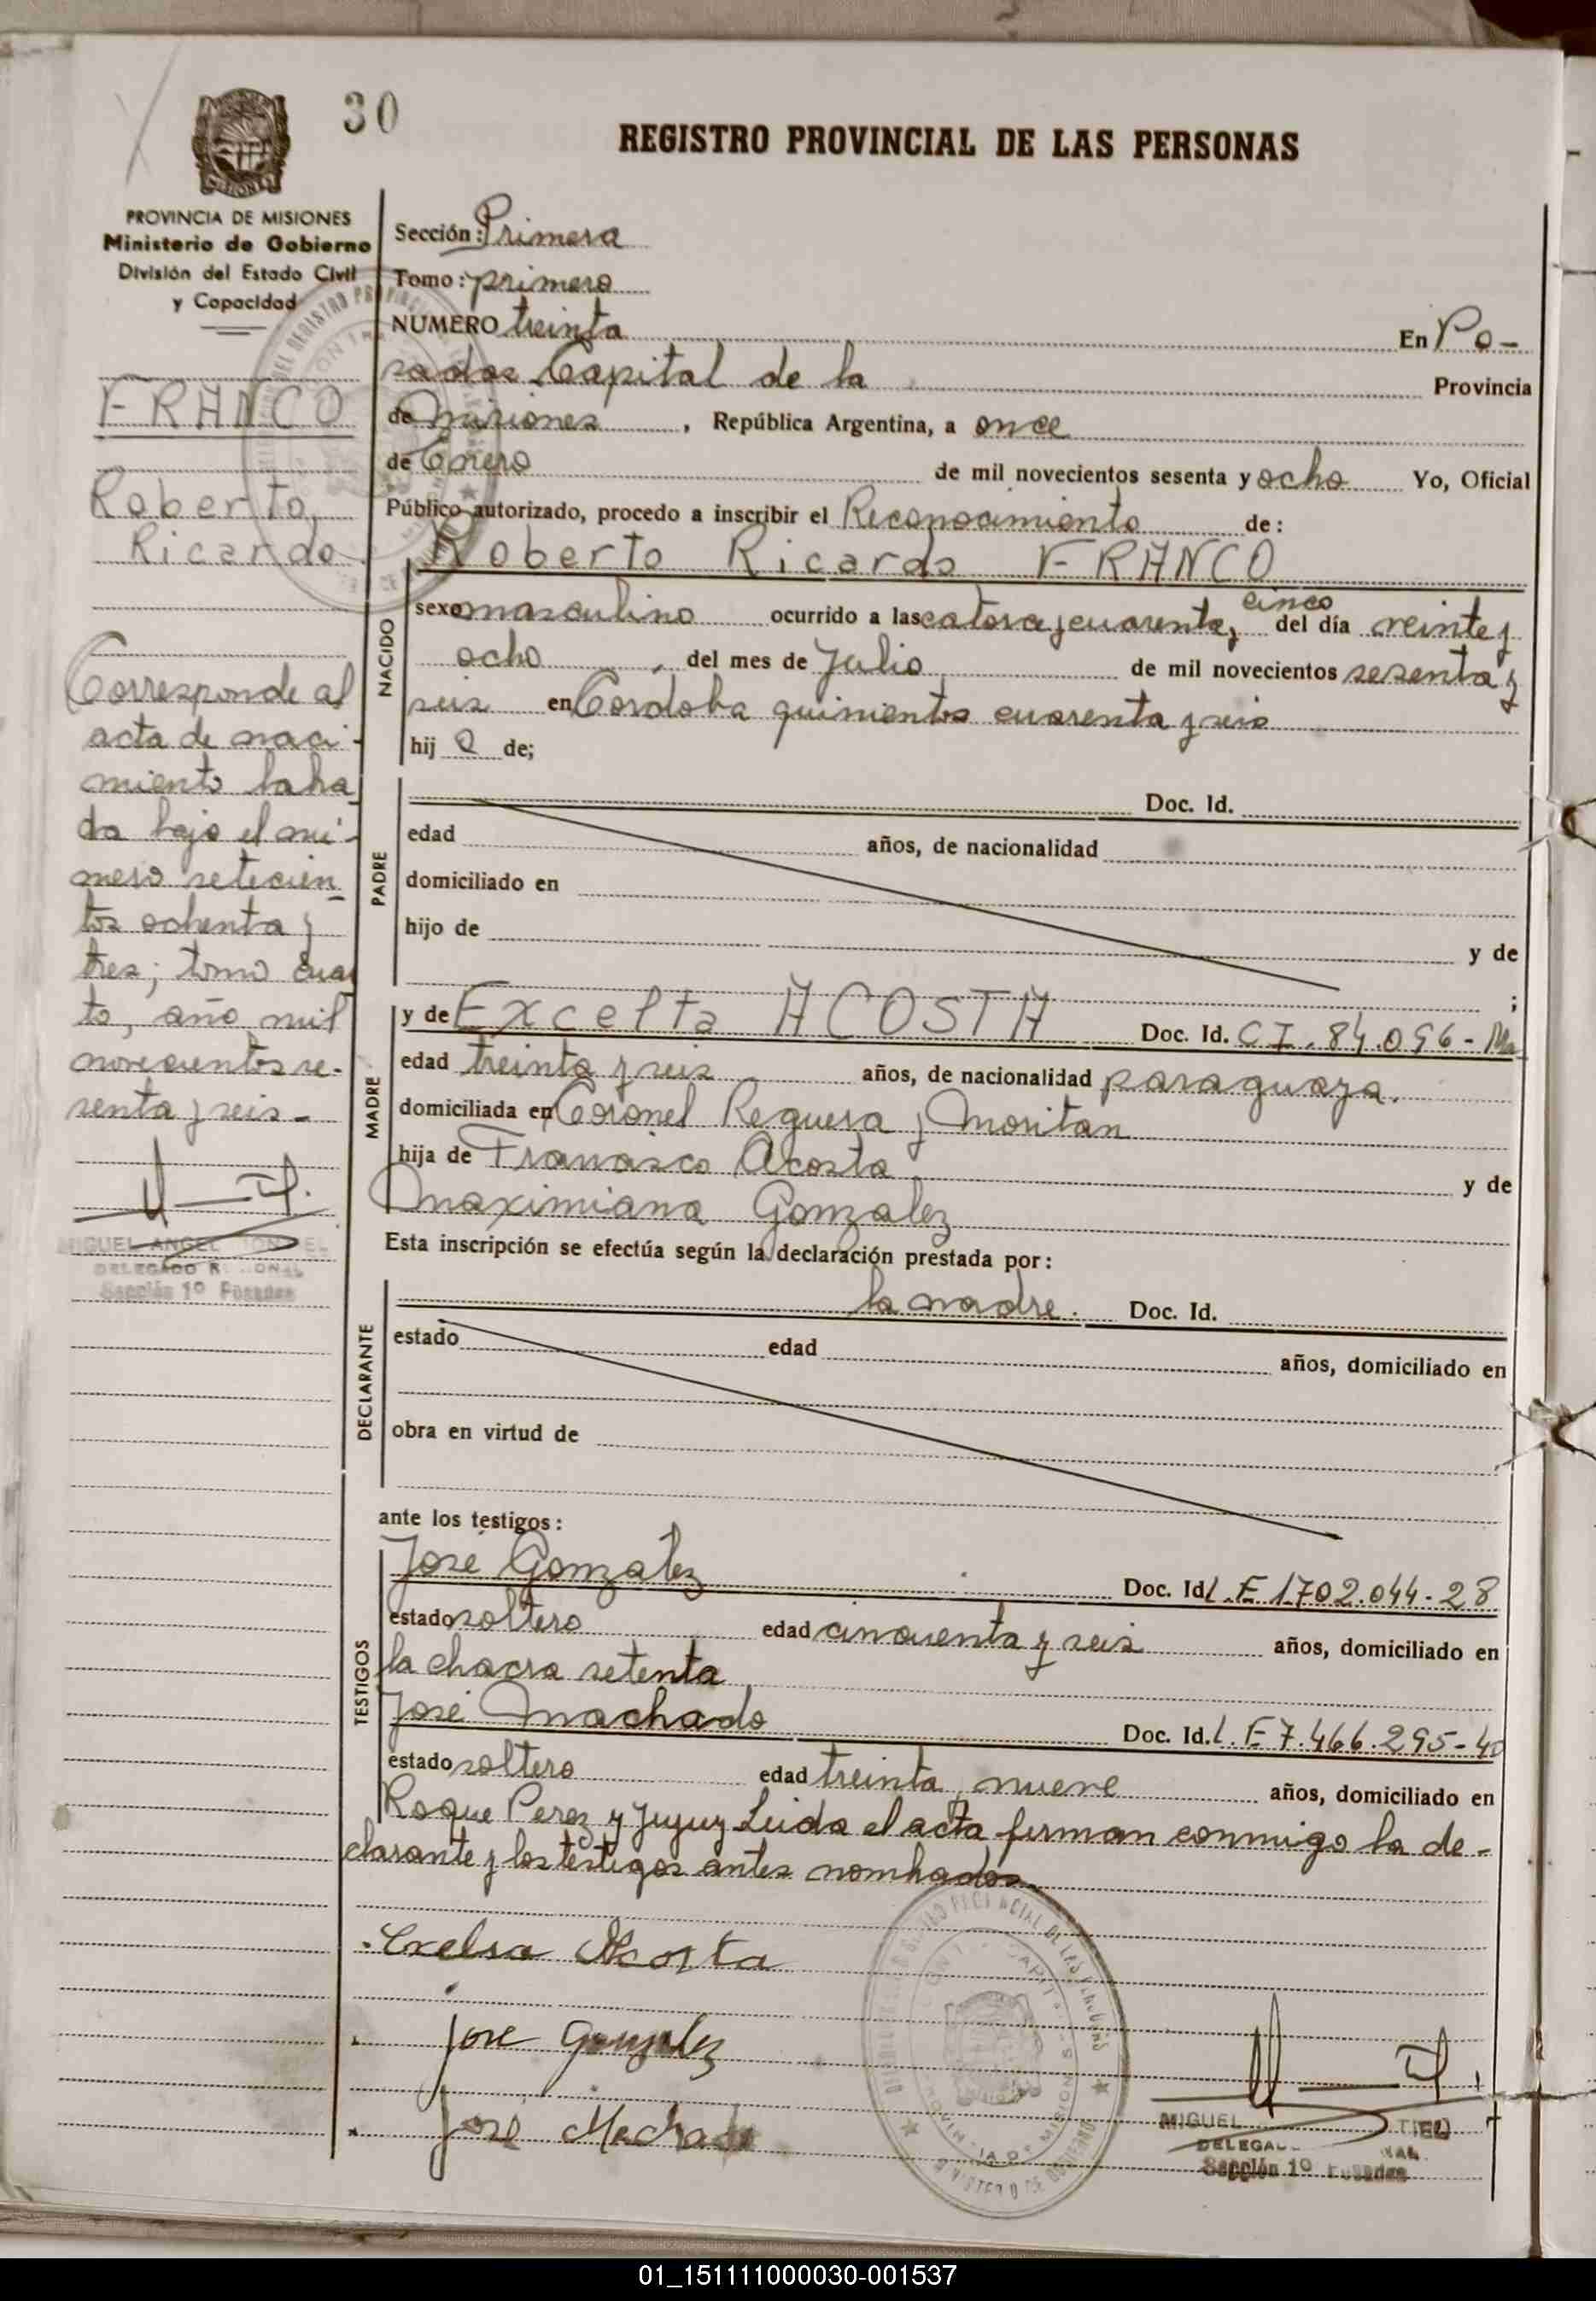 30
REGISTRO PROVINCIAL DE LAS PERSONAS
PROVINCIA DE MISIONES
Ministerio de Gobierno
División del Estado Civil
y Capacidad
FRANCO
Roberto,
Ricardo
Corresponde al
acta de naci-
miento labra
da bajo el nú-
mero setecien
tos ochenta y
tres, tomo cuar
to, año mil
novecientos se-
senta y seis-
MIGUEL ANGEL
DELEGADO
Sección 1º Posadas
Sección: Primera
Tomo: primero
NUMERO treinta En Po-
sadas Capital de la Provincia
de Misiones, República Argentina, a once
de Enero de mil novecientos sesenta y ocho Yo, Oficial
Público autorizado, procedo a inscribir el Reconocimiento de:
Roberto Ricardo FRANCO
NACIDO
cinco
sexo masculino ocurrido a las catorce y cuarenta y del día veinte y
ocho, del mes de Julio de mil novecientos sesenta y
seis en Cordoba quinientos cuarenta y seis
hij o de;
PADRE
Doc. Id.
edad años, de nacionalidad
domiciliado en
hijo de y de
;
MADRE
y de Excelta ACOSTA Doc. Id. C I. 84.096 -
edad treinta y seis años, de nacionalidad paraguaya.
domiciliada en Coronel Reguera y Moritan
hija de Francisco Acosta y de
Maximiana Gonzalez
Esta inscripción se efectúa según la declaración prestada por:
DECLARANTE
la madre. Doc. Id.
estado edad años, domiciliado en
obra en virtud de
ante los testigos:
TESTIGOS
José Gonzalez Doc. Id L.E 1.702.044-28
estado soltero edad cincuenta y seis años, domiciliado en
la chacra setenta
José Machado Doc. Id. L.E 7.466.295-40
estado soltero edad treinta nueve años, domiciliado en
Roque Perez y Jujuy Leida el acta firman conmigo la de-
clarante y los testigos antes nombrados
Exelsa Acosta
Jose Gonzalez
José Machado
MIGUEL
Sección 1º Posadas
01_151111000030-001537